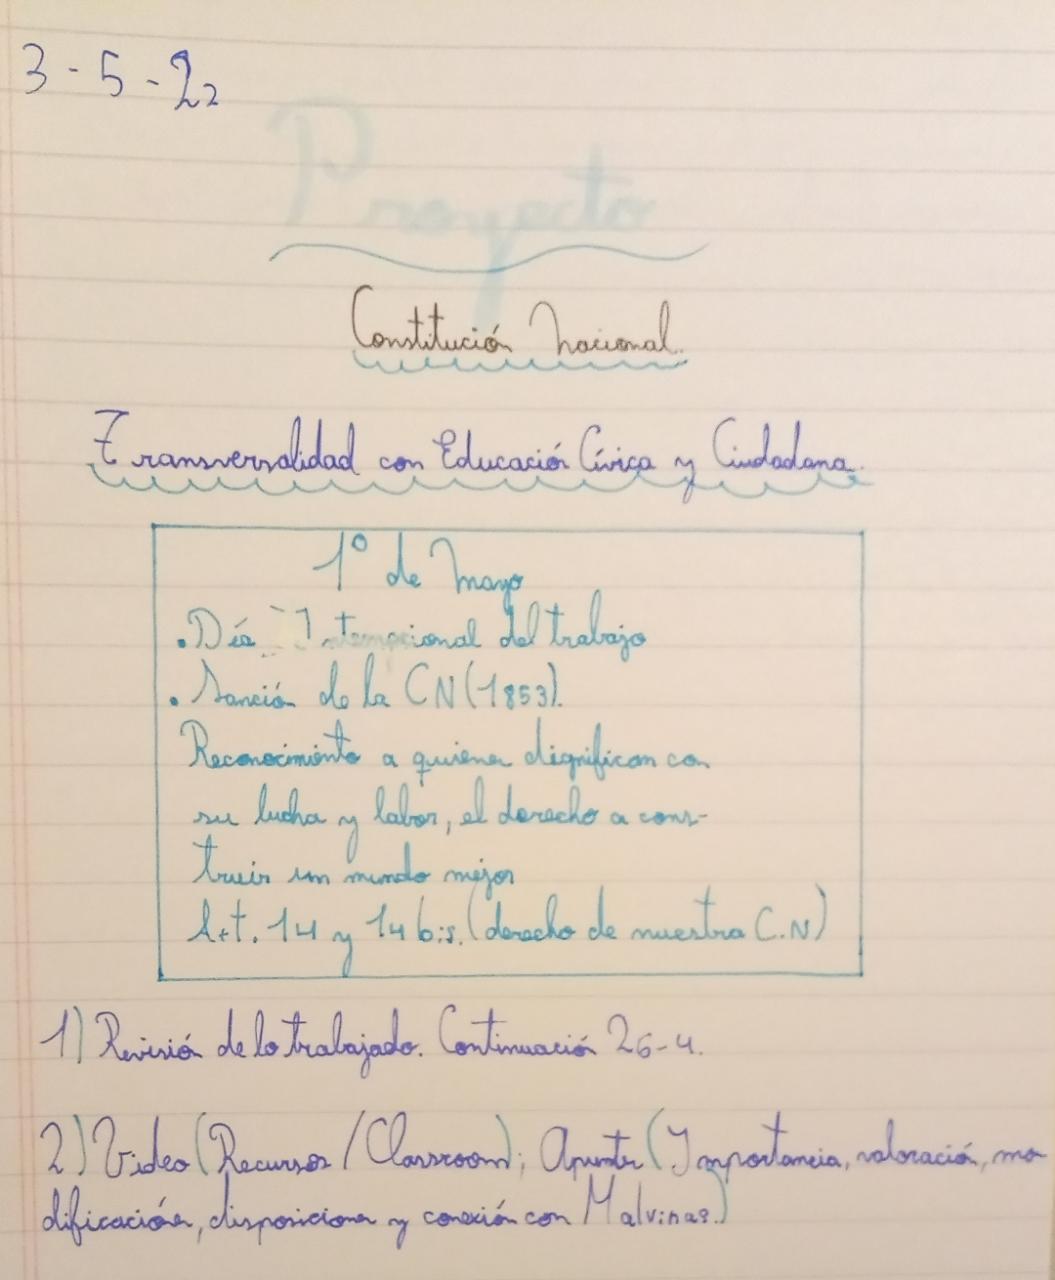 3-5-22
Proyecto
Constitución Nacional.
Transversalidad con Educación Cívica y Ciudadana.
1º de Mayo
• Día Internacional del trabajo
• Sanción de la CN (1853).
Reconocimiento a quienes dignifican con
su lucha y labor, el derecho a cons-
truir un mundo mejor
Art. 14 y 14 bis. (derecho de nuestra C.N)
1) Revisión de lo trabajado. Continuación 26-4.
2) Video (Recursos / Classroom); Apuntes (Importancia, valoración, mo
dificaciones, disposiciones y conexión con Malvinas.)